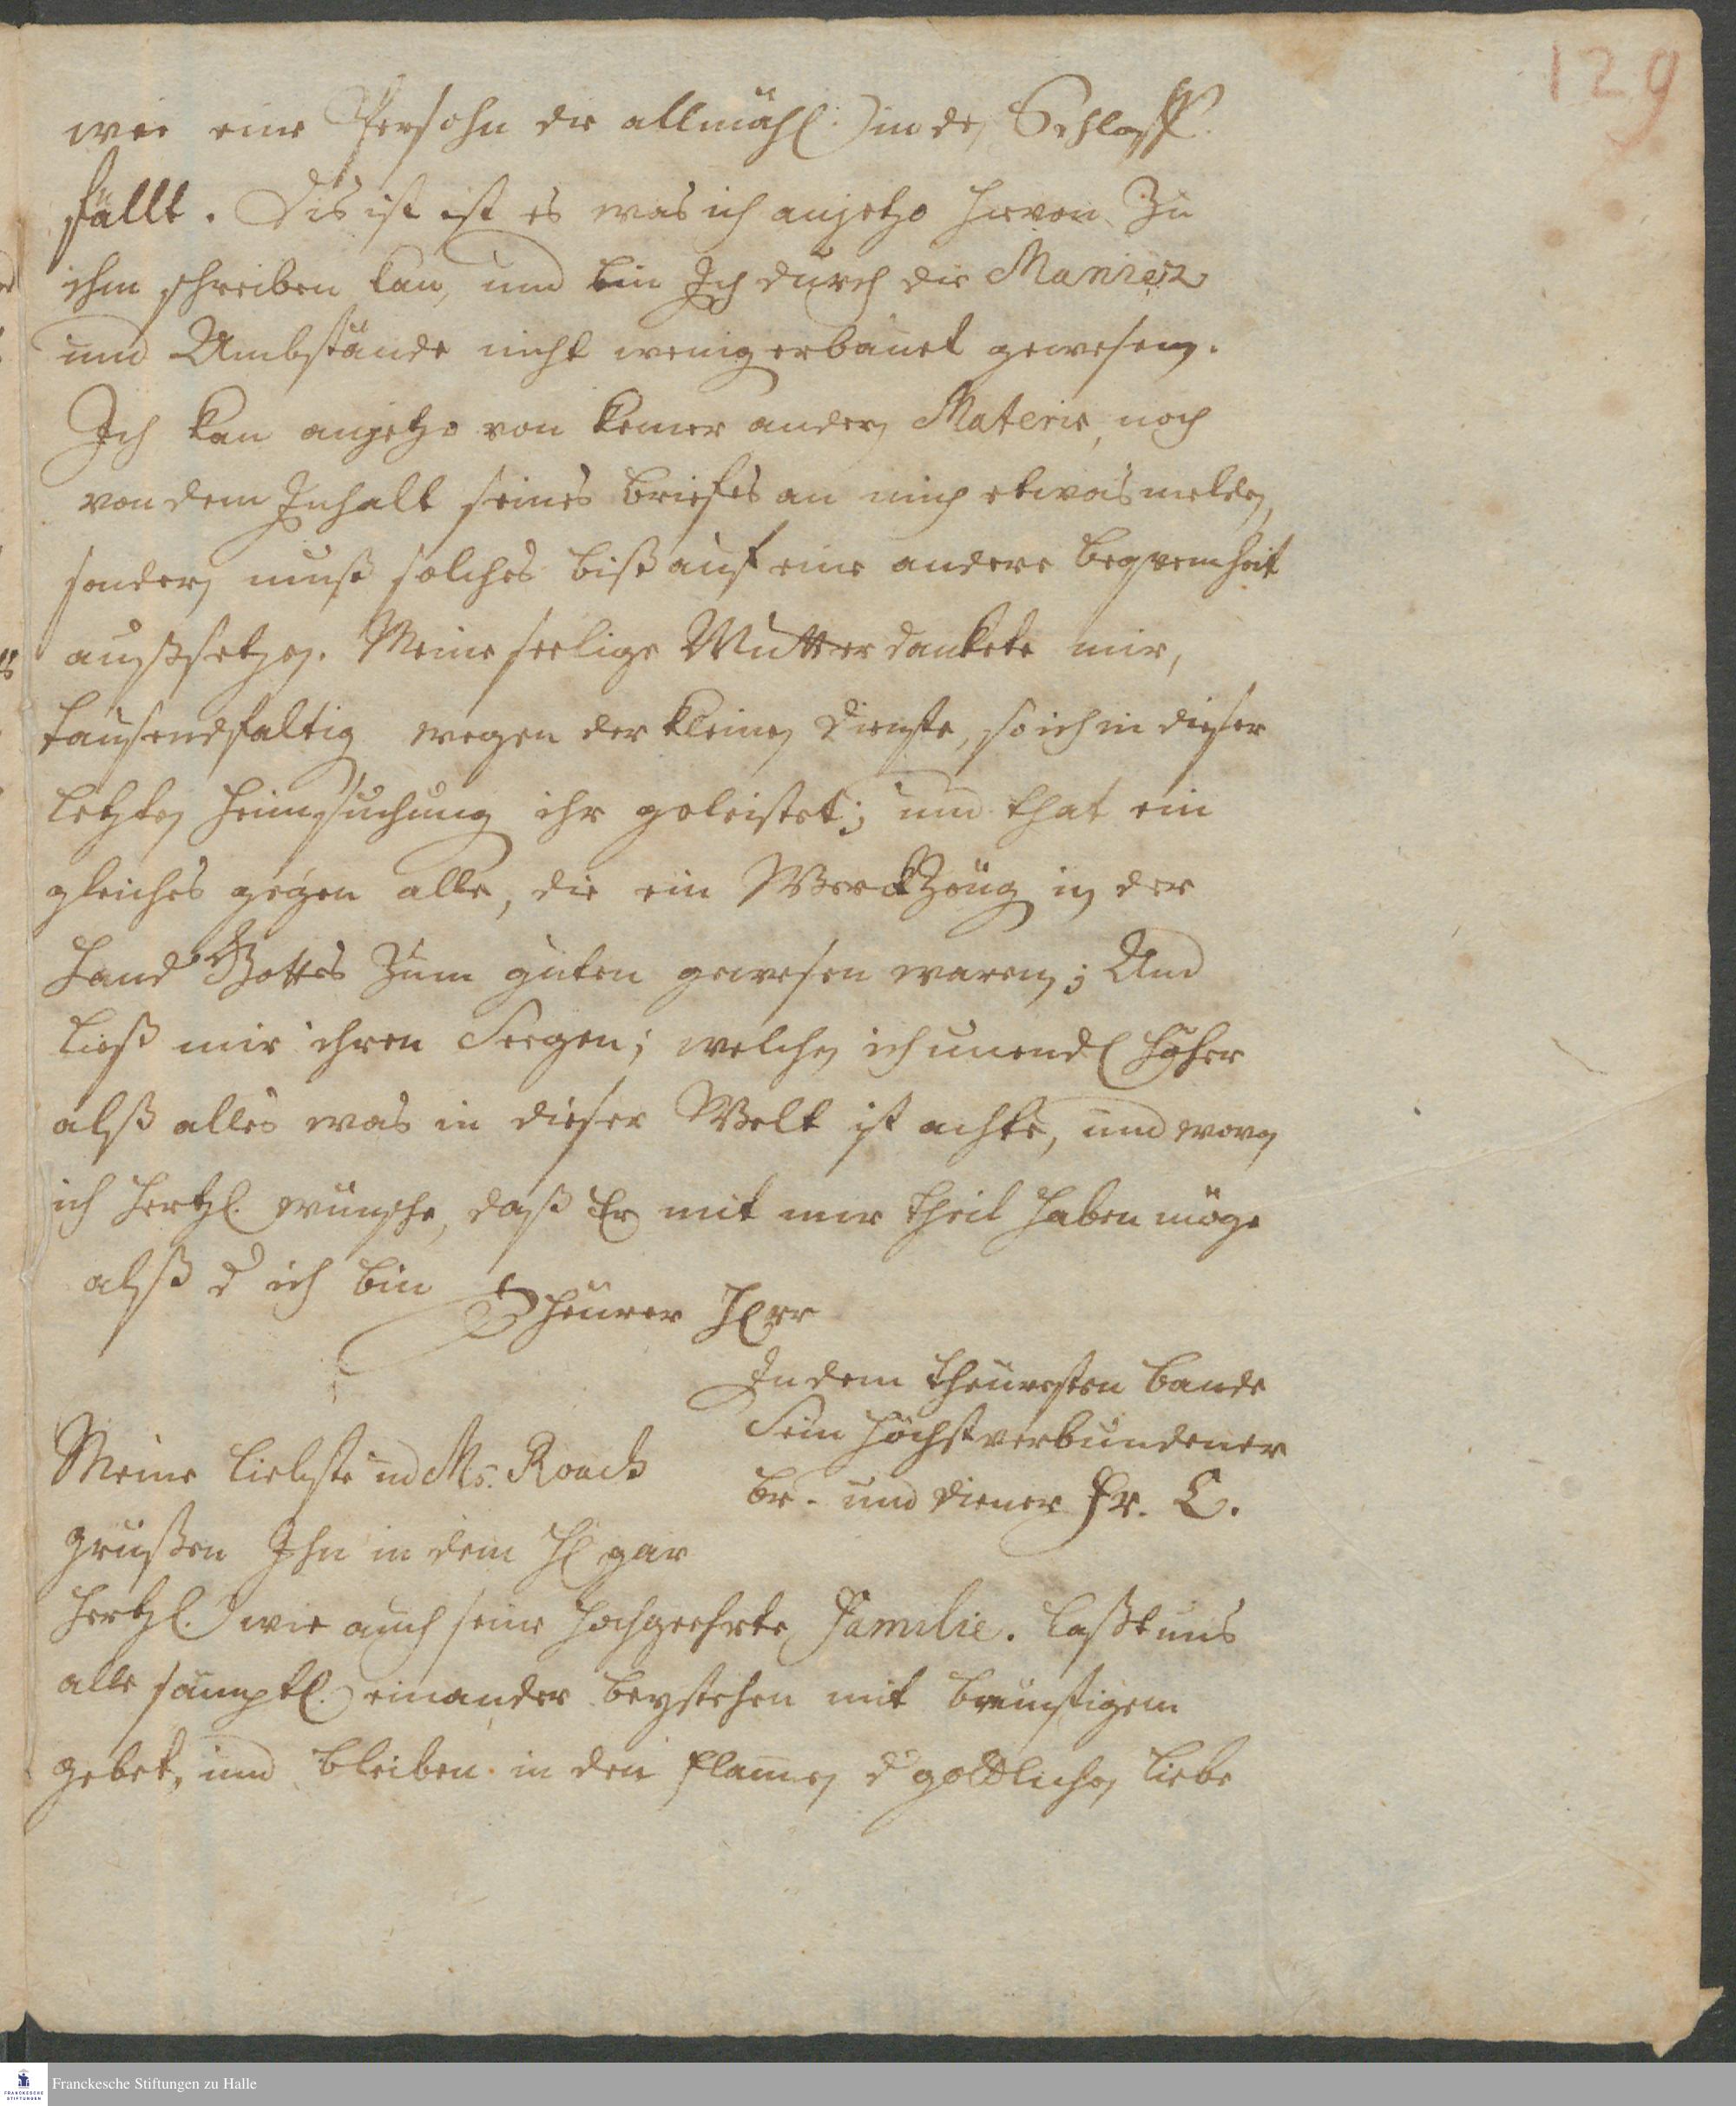 129
wie eine Persohn die allmähl. in den Schlaff
fällt. Dis ist ist es was ich anjetzo hievon zu
ihm schreiben kan, und bin Ich durch die Manier
und Umbstände nicht wenig erbauet gewesen.
Ich kan anjetzo von keiner andern Materie, noch
von dem Inhalt seines briefes an mich etwas melden,
sondern muß solches biß auf eine andere beqvemheit
außsetzen. Meine seelige Mutter danckete mir,
tausendfaltig wegen der kleinen dienste, so ich in dieser
letzten heimsuchung ihr geleistet; und that ein
gleiches gegen alle, die ein Werckzeug in der
Hand Gottes zum guten gewesen waren; Und
ließ mir ihren Seegen; welchen ich unendl. höher
alß alles was in dieser Welt ist achte, und woran
ich hertzl. wünsche, daß Er mit mir theil haben möge
alß d ich bin
Theurer Herr
In dem theuresten bande
Sein höchstverbundener
br. und diener Fr. L.
Meine liebste und Mr. Roach
grüßen Ihn in dem H. gar
hertzl. wie auch seine hochgeehrte Familie. Laßt uns
alle sämptl. einander beystehen mit brünstigem
gebet, und bleiben in den flammen d göttlichen liebe
Franckesche Stiftungen zu Halle
FRANCKESCHE
STIFTUNGEN